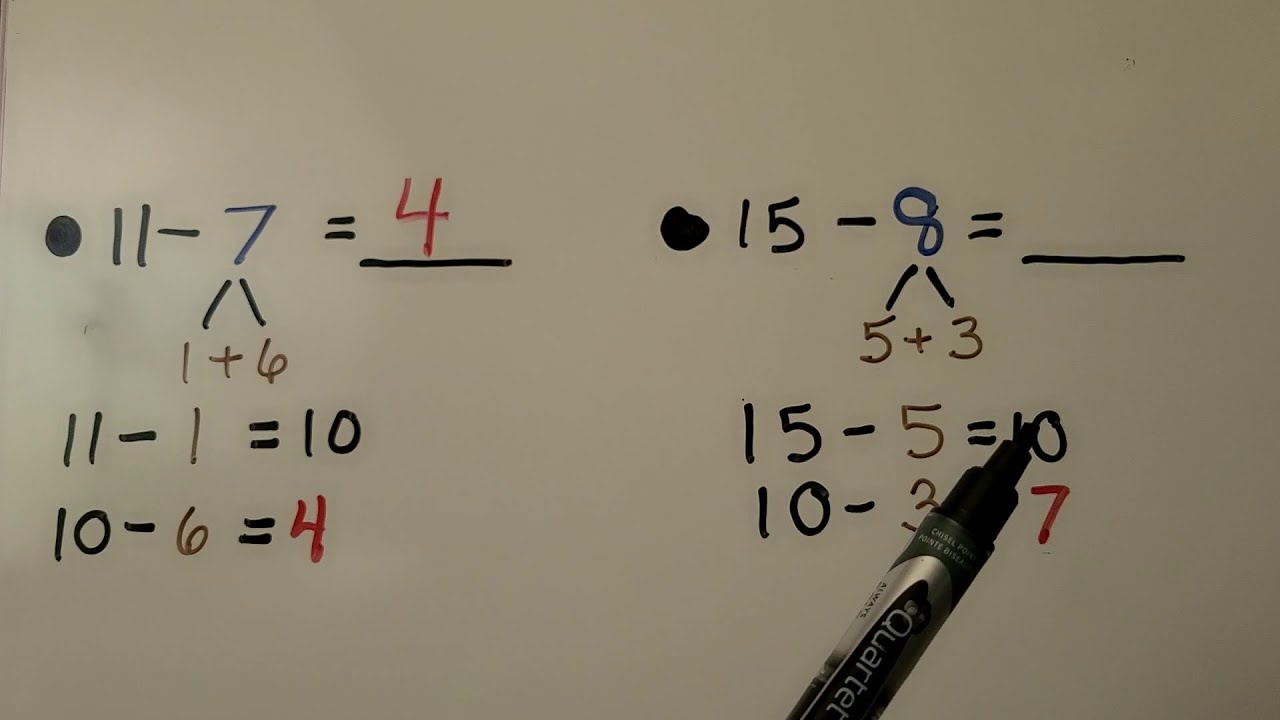 11 - 7 = 4
1 + 6
11 - 1 = 10
10 - 6 = 4
15 - 8 =
5 + 3
15 - 5 = 10
10 - 3 7
CHISEL POINT
POINTE
ALWAYS
Quartet